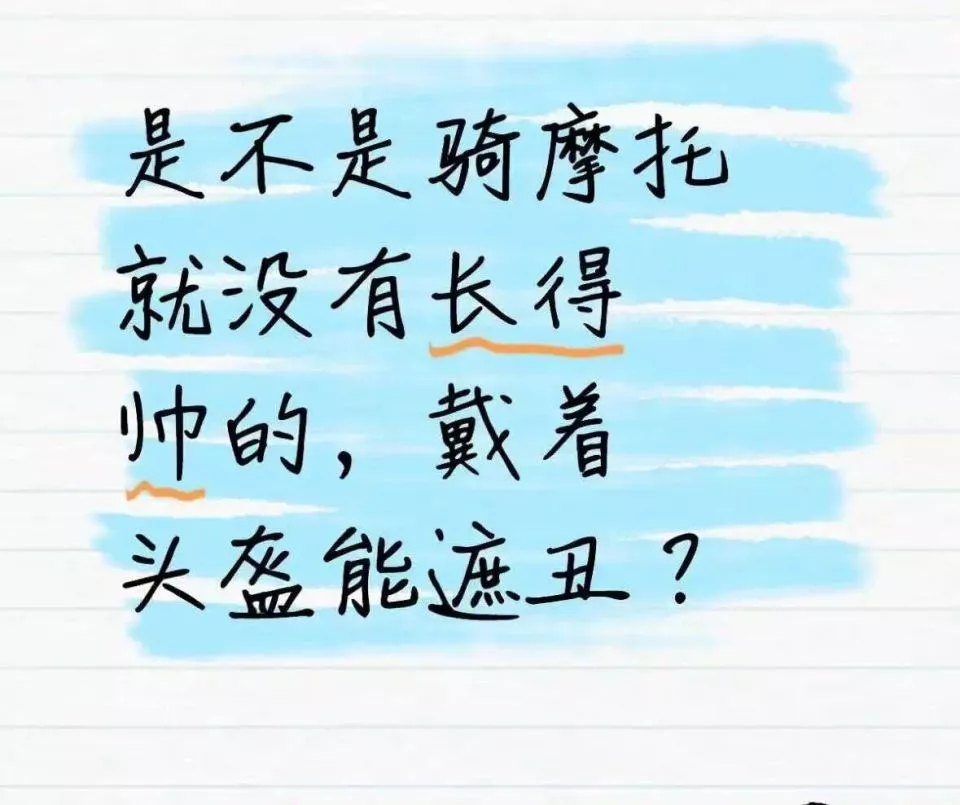 是不是骑摩托
就没有长得
帅的，戴着
头盔能遮丑？